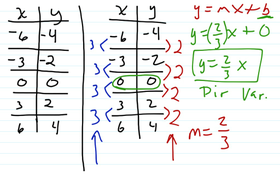 x y
-6 -4
-3 -2
0 0
3 2
6 4
x y
-6 -4
-3 -2
0 0
3 2
6 4
3 3 3 3
2 2 2 2
y = mx + b
y = (2/3)x + 0
y = 2/3 x
Dir Var.
m = 2/3